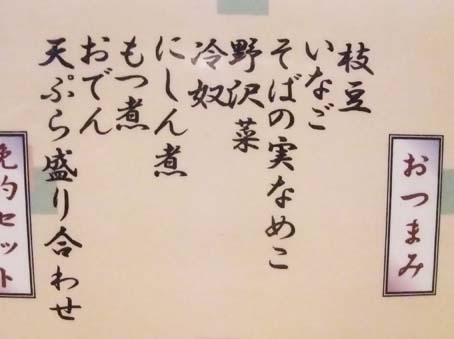 おつまみ
枝豆
いなご
そばの実なめこ
野沢菜
冷奴
にしん煮
もつ煮
おでん
天ぷら盛り合わせ
晩酌セット